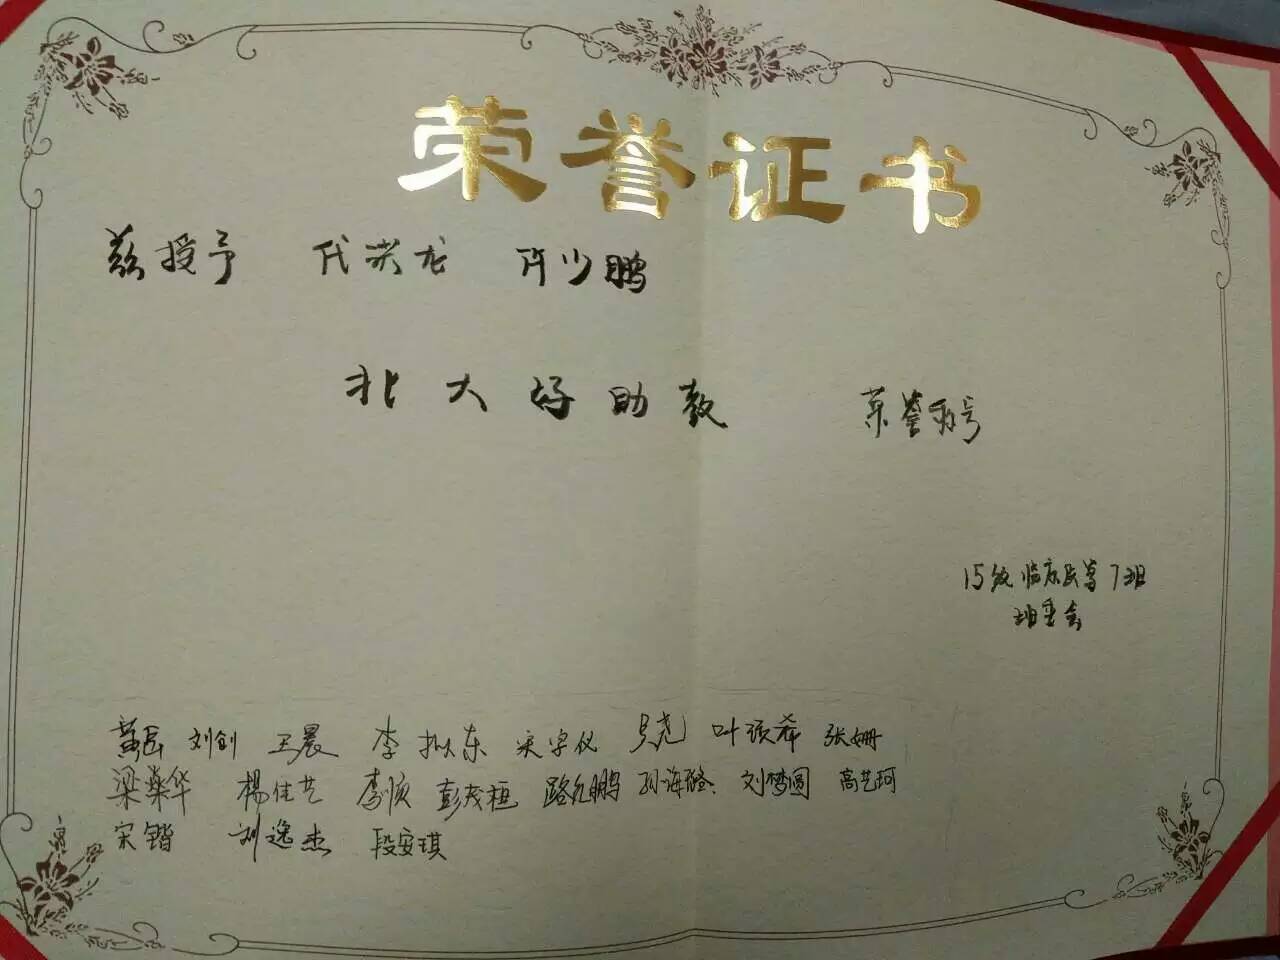 荣誉证书
兹授予 代洪龙 许少鹏
北大好助教 荣誉称号
15级临床医学7班
班委会
刘创 王晨 李拟东 宋宇仪 叶颂希 张姗
梁燊华 杨佳艺 李顺 彭茂桓 路允鹏 孙海璐 刘梦圆 高艺珂
宋锴 刘逸杰 段安琪